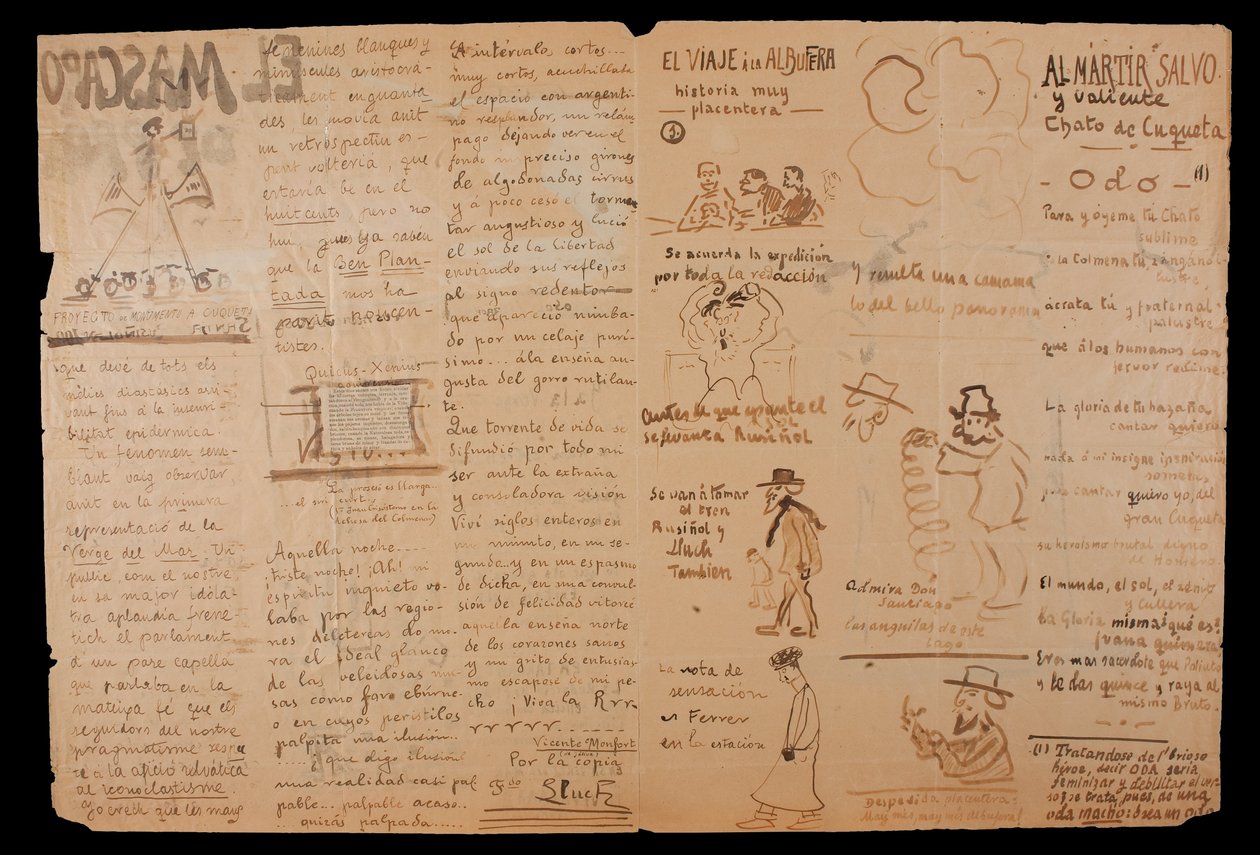 EL MASCARO
PROYECTO DE MONUMENTO A CUQUETA
que devé de tots els
médics diastásics arri-
vant fins á la insensi-
bilitat epidermica.
Un fenomen sem-
blant vaig observar,
anit en la primera
representació de la
Verge del Mar. Un
public, com el nostre,
en sa major idóla-
tra aplaudía frene-
tich el parlament
d'un pare capellá
que parlaba en la
mateixa fé que els
seguidors del nostre
pragmatisme respe
á la afició
al iconoclastisme.
Yo crech que les mans
femenines llanques y
minuscules aristocrá-
ticament enguanta-
des, les movía anit
un retrospectiu es-
perit volteriá, que
estaría be en el
huitcents, pero no
hui, pues ya saben
que la Ben Plan-
tada mos ha
parit noucen-
tistes.
Quiclus-Xenius
VISTO...
La prosció es llarga..
...el siri curt..
(1er Jueu Insistome en la
hebrea del Colmenar)
Aquella noche....
¡triste noche! ¡Ah! mi
espíritu inquieto vo-
laba por las regio-
nes deletereas do mo-
ra el ideal glauco
de las veleidosas mu-
sas como faro ebúrne-
o en cuyos peristilos
palpita una ilusión...
¿que digo ilusión?
una realidad casi pal
pable... palpable acaso..
... quizás palpada.....
A intérvalos cortos...
muy cortos, acuchillada
el espacio con argenti-
no resplandor, un relám
pago dejando ver en el
fondo impreciso girones
de algodonadas cirrus
y á poco cesó el tormen
tar angustioso y lució
el sol de la libertad
enviando sus reflejos
al signo redentor
que apareció nimba-
do por un celaje purí-
simo... á la enseña au-
gusta del gorro rutilan-
te.
Que torrente de vida se
difundió por todo mi
ser ante la extraña
y consoladora visión
Viví siglos enteros en
un minuto, en un se-
gundo..y en un espasmo
de dicha, en una convul-
sión de felicidad vitoreé
aquella enseña norte
de los corazones sanos
y un grito de entusias-
mo escapóse de mi pe-
cho ¡Viva la Rrr
rrrrr..........
Vicente Monfort
Por la copia
Fdo Lluch
EL VIAJE á la ALBUFERA
historia muy
placentera
1.
Se acuerda la expedición
por toda la redacción
Antes de que apunte el
se levanta Rusiñol
Se van á tomar
el tren
Rusiñol y
Lluch
Tambien
La nota de
sensación
es Ferrer
en la estación
Y resulta una camama
lo del bello panorama
Admira Don
Santiago
las anguilas de este
lago
Despedida placentera:
May més, may més Albufera!
AL MÁRTIR SALVO
y valiente
Chato de Cuqueta
- Odo - (1)
Para y óyeme tú Chato
sublime
de la Colmena tú zángano
ilustre,
ácrata tú y fraternal
palustre,
que á los humanos con
fervor redime:
La gloria de tu hazaña
cantar quiero
nada á mi insigne inspiración
someto,
pues cantar quiero yo, del
gran Cuqueta
su heroismo brutal digno
de Homero.
El mundo, el sol, el zénit
y Cullera
La Gloria misma ¿qué es?
¡vana quimera!
Eres mas sacerdote que Pilatos
y le das quince y raya al
mismo Bruto.
(1) Tratandose del brioso
héroe, decir ODA seria
feminizar y debilitar el ver-
so; se trata pues, de una
oda macho: ó sea un odo